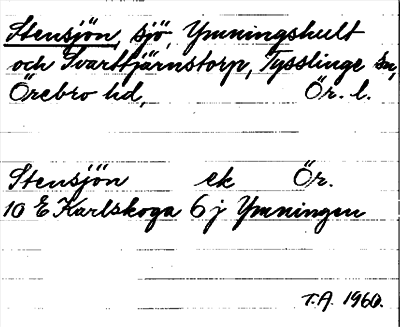 Stensjön, sjö, Ymningshult
och Svarttjärnstorp, Tysslinge sn,
Örebro hd, Ör. l.
Stensjön ek Ör.
10 E Karlskoga 6 j Ymningen
T.A. 1960.